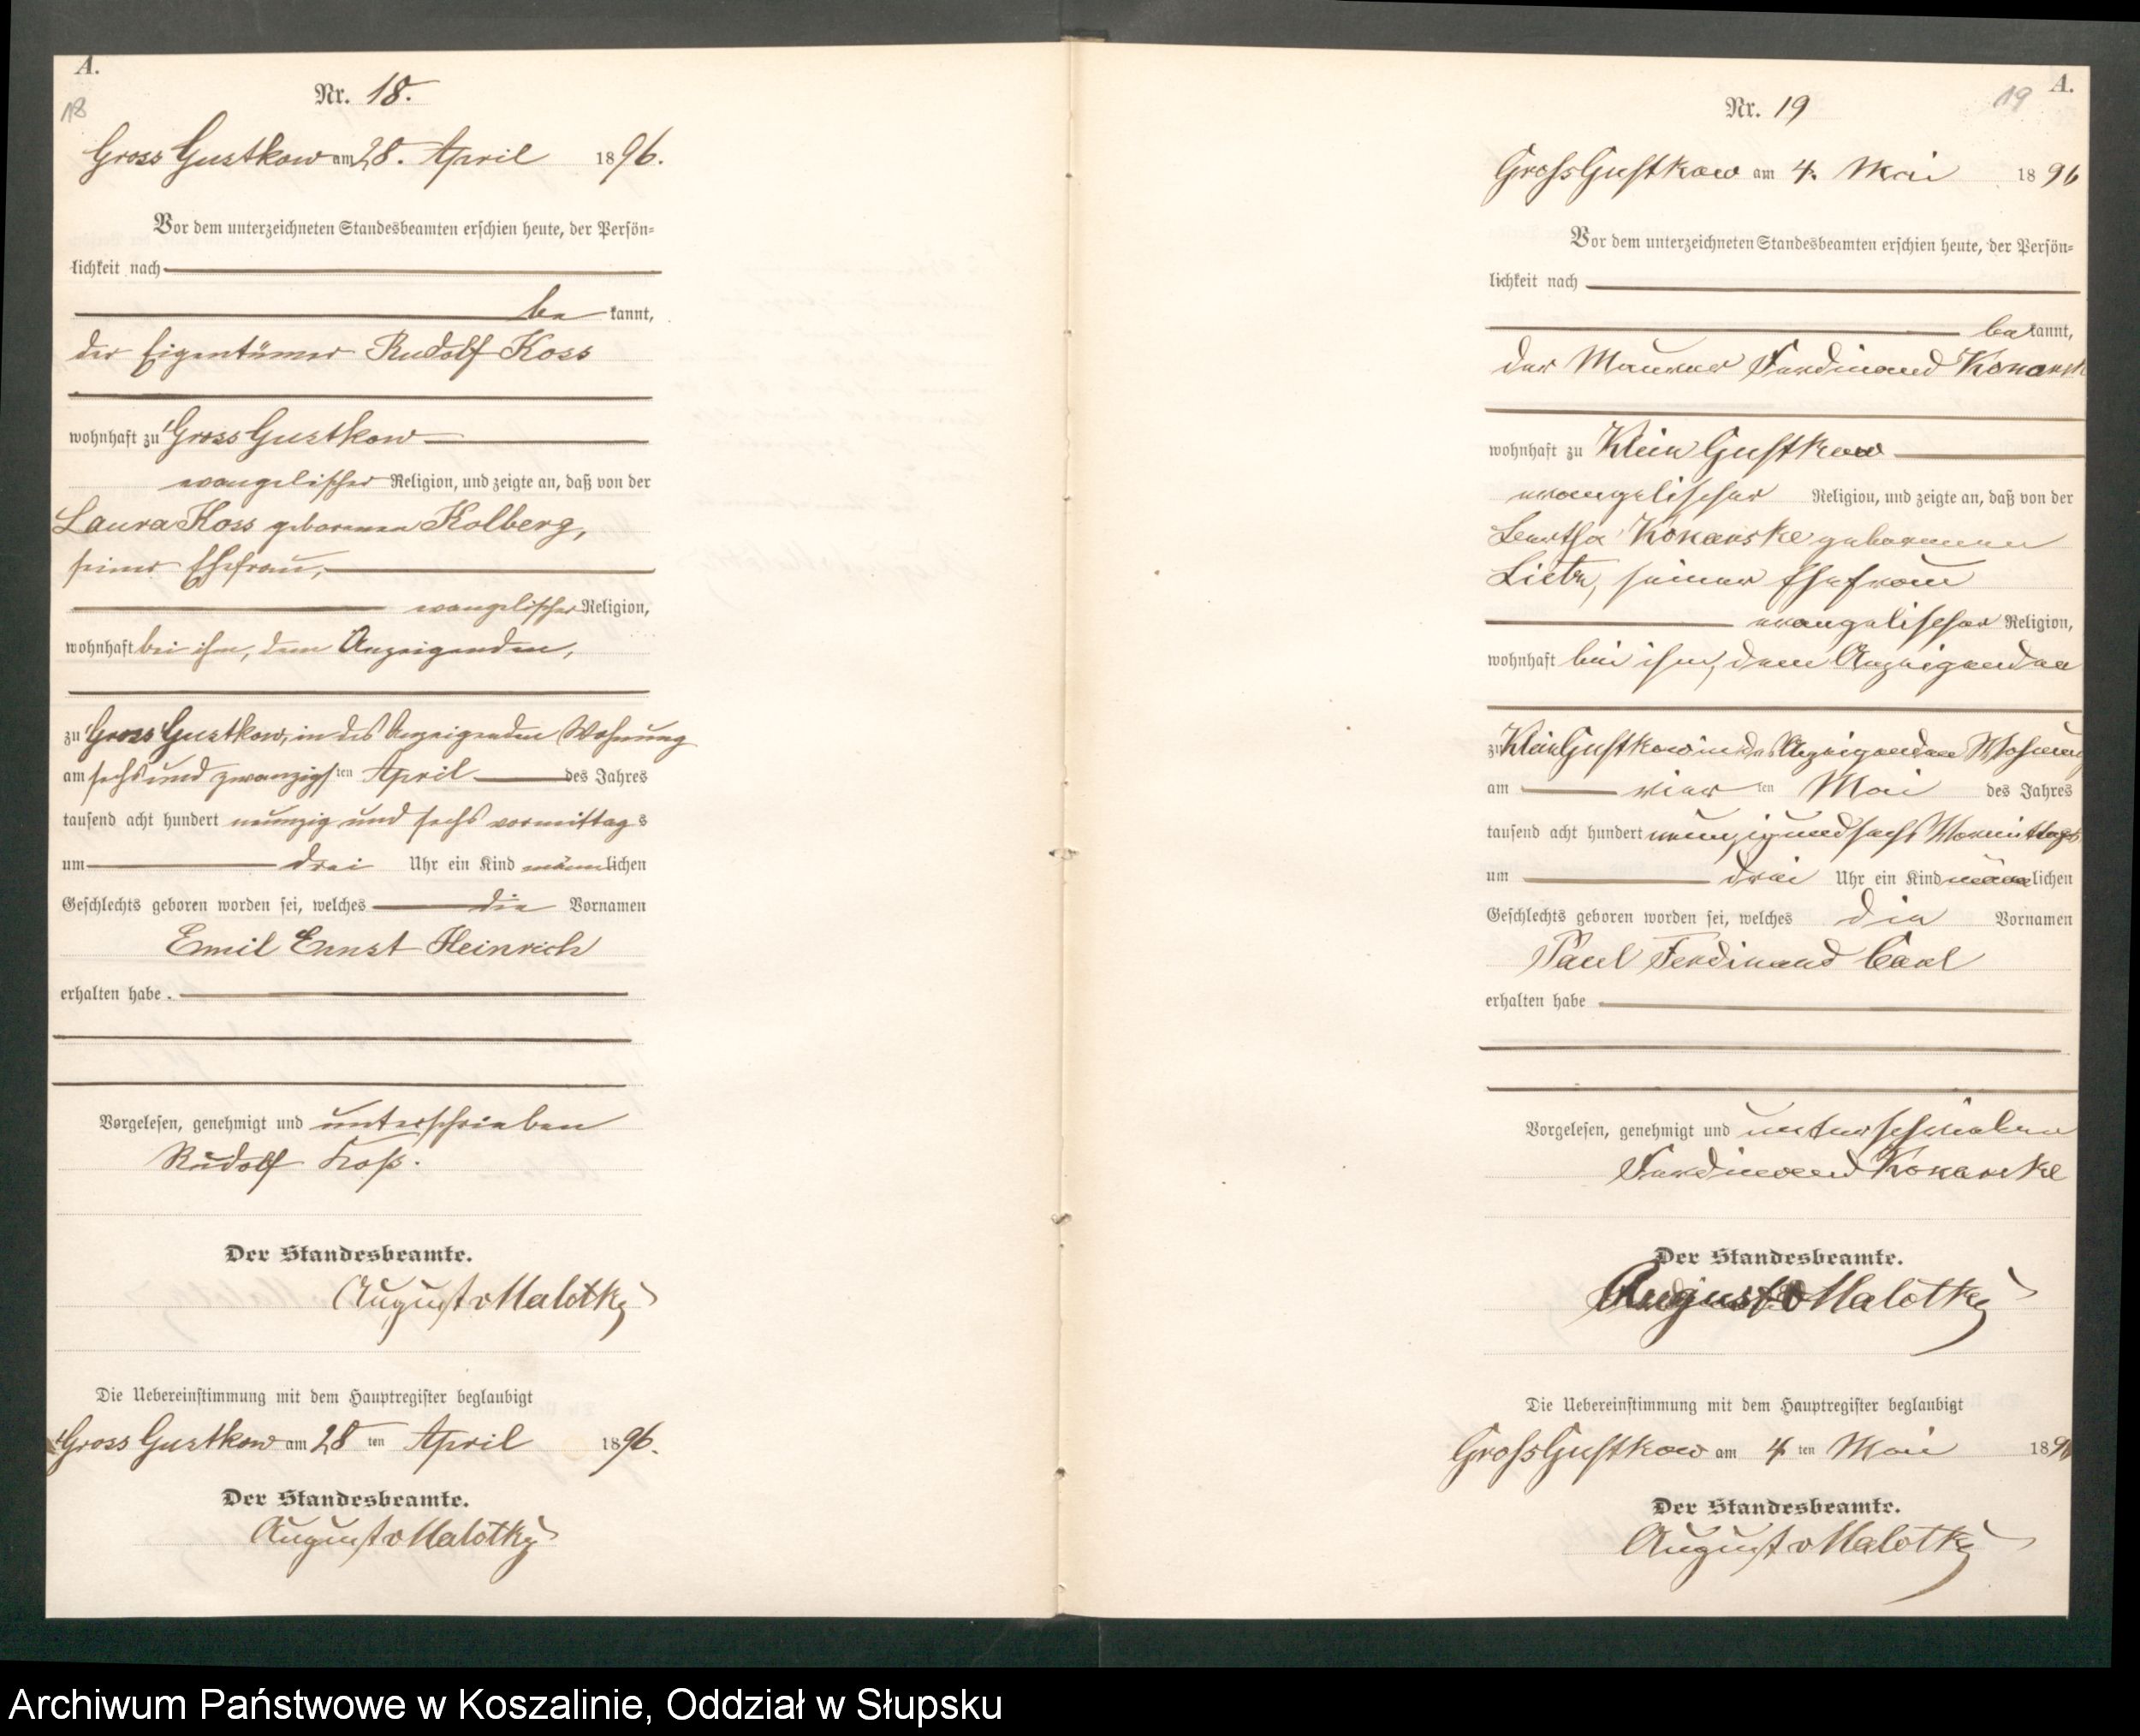 A.
18
Nr. 18.
Gross Gustkow am 28. April 1896.
Vor dem unterzeichneten Standesbeamten erschien heute, der Persön=
lichkeit nach
be kannt,
der Eigentümer Rudolf Koss
wohnhaft zu Gross Gustkow
evangelischer Religion, und zeigte an, daß von der
Laura Koss geborenen Kolberg,
seiner Ehefrau,
evangelischer Religion,
wohnhaft bei ihm, dem Anzeigenden,
zu Gross Gustkow, in des Anzeigenden Wohnung
am sechs und zwanzigsten April des Jahres
tausend acht hundert neunzig und sechs vormittags
um drei Uhr ein Kind männlichen
Geschlechts geboren worden sei, welches die Vornamen
Emil Ernst Heinrich
erhalten habe.
Vorgelesen, genehmigt und unterschrieben
Rudolf Koß.
Der Standesbeamte.
August v Malotky
Die Uebereinstimmung mit dem Hauptregister beglaubigt
Gross Gustkow am 28 ten April 1896.
Der Standesbeamte.
August v Malotky
A.
19
Nr. 19
Groß Gustkow am 4. Mai 1896
Vor dem unterzeichneten Standesbeamten erschien heute, der Persön=
lichkeit nach
bekannt,
der Maurer Ferdinand Konarsk
wohnhaft zu Klein Gustkow
evangelischer Religion, und zeigte an, daß von der
Bertha Konarske geborenen
seiner Ehefrau
evangelischer Religion,
wohnhaft bei ihm, dem Anzeigenden
zu Klein Gustkow in des Anzeigenden Wohnung
am vier ten Mai des Jahres
tausend acht hundert neunzig und sechs Vormittags
um drei Uhr ein Kind männlichen
Geschlechts geboren worden sei, welches die Vornamen
Paul Ferdinand Carl
erhalten habe
Vorgelesen, genehmigt und unterschrieben
Ferdinand Konarske
Der Standesbeamte.
August v Malotky
Die Uebereinstimmung mit dem Hauptregister beglaubigt
Groß Gustkow am 4 ten Mai 1896
Der Standesbeamte.
August v Malotky
Archiwum Państwowe w Koszalinie, Oddział w Słupsku